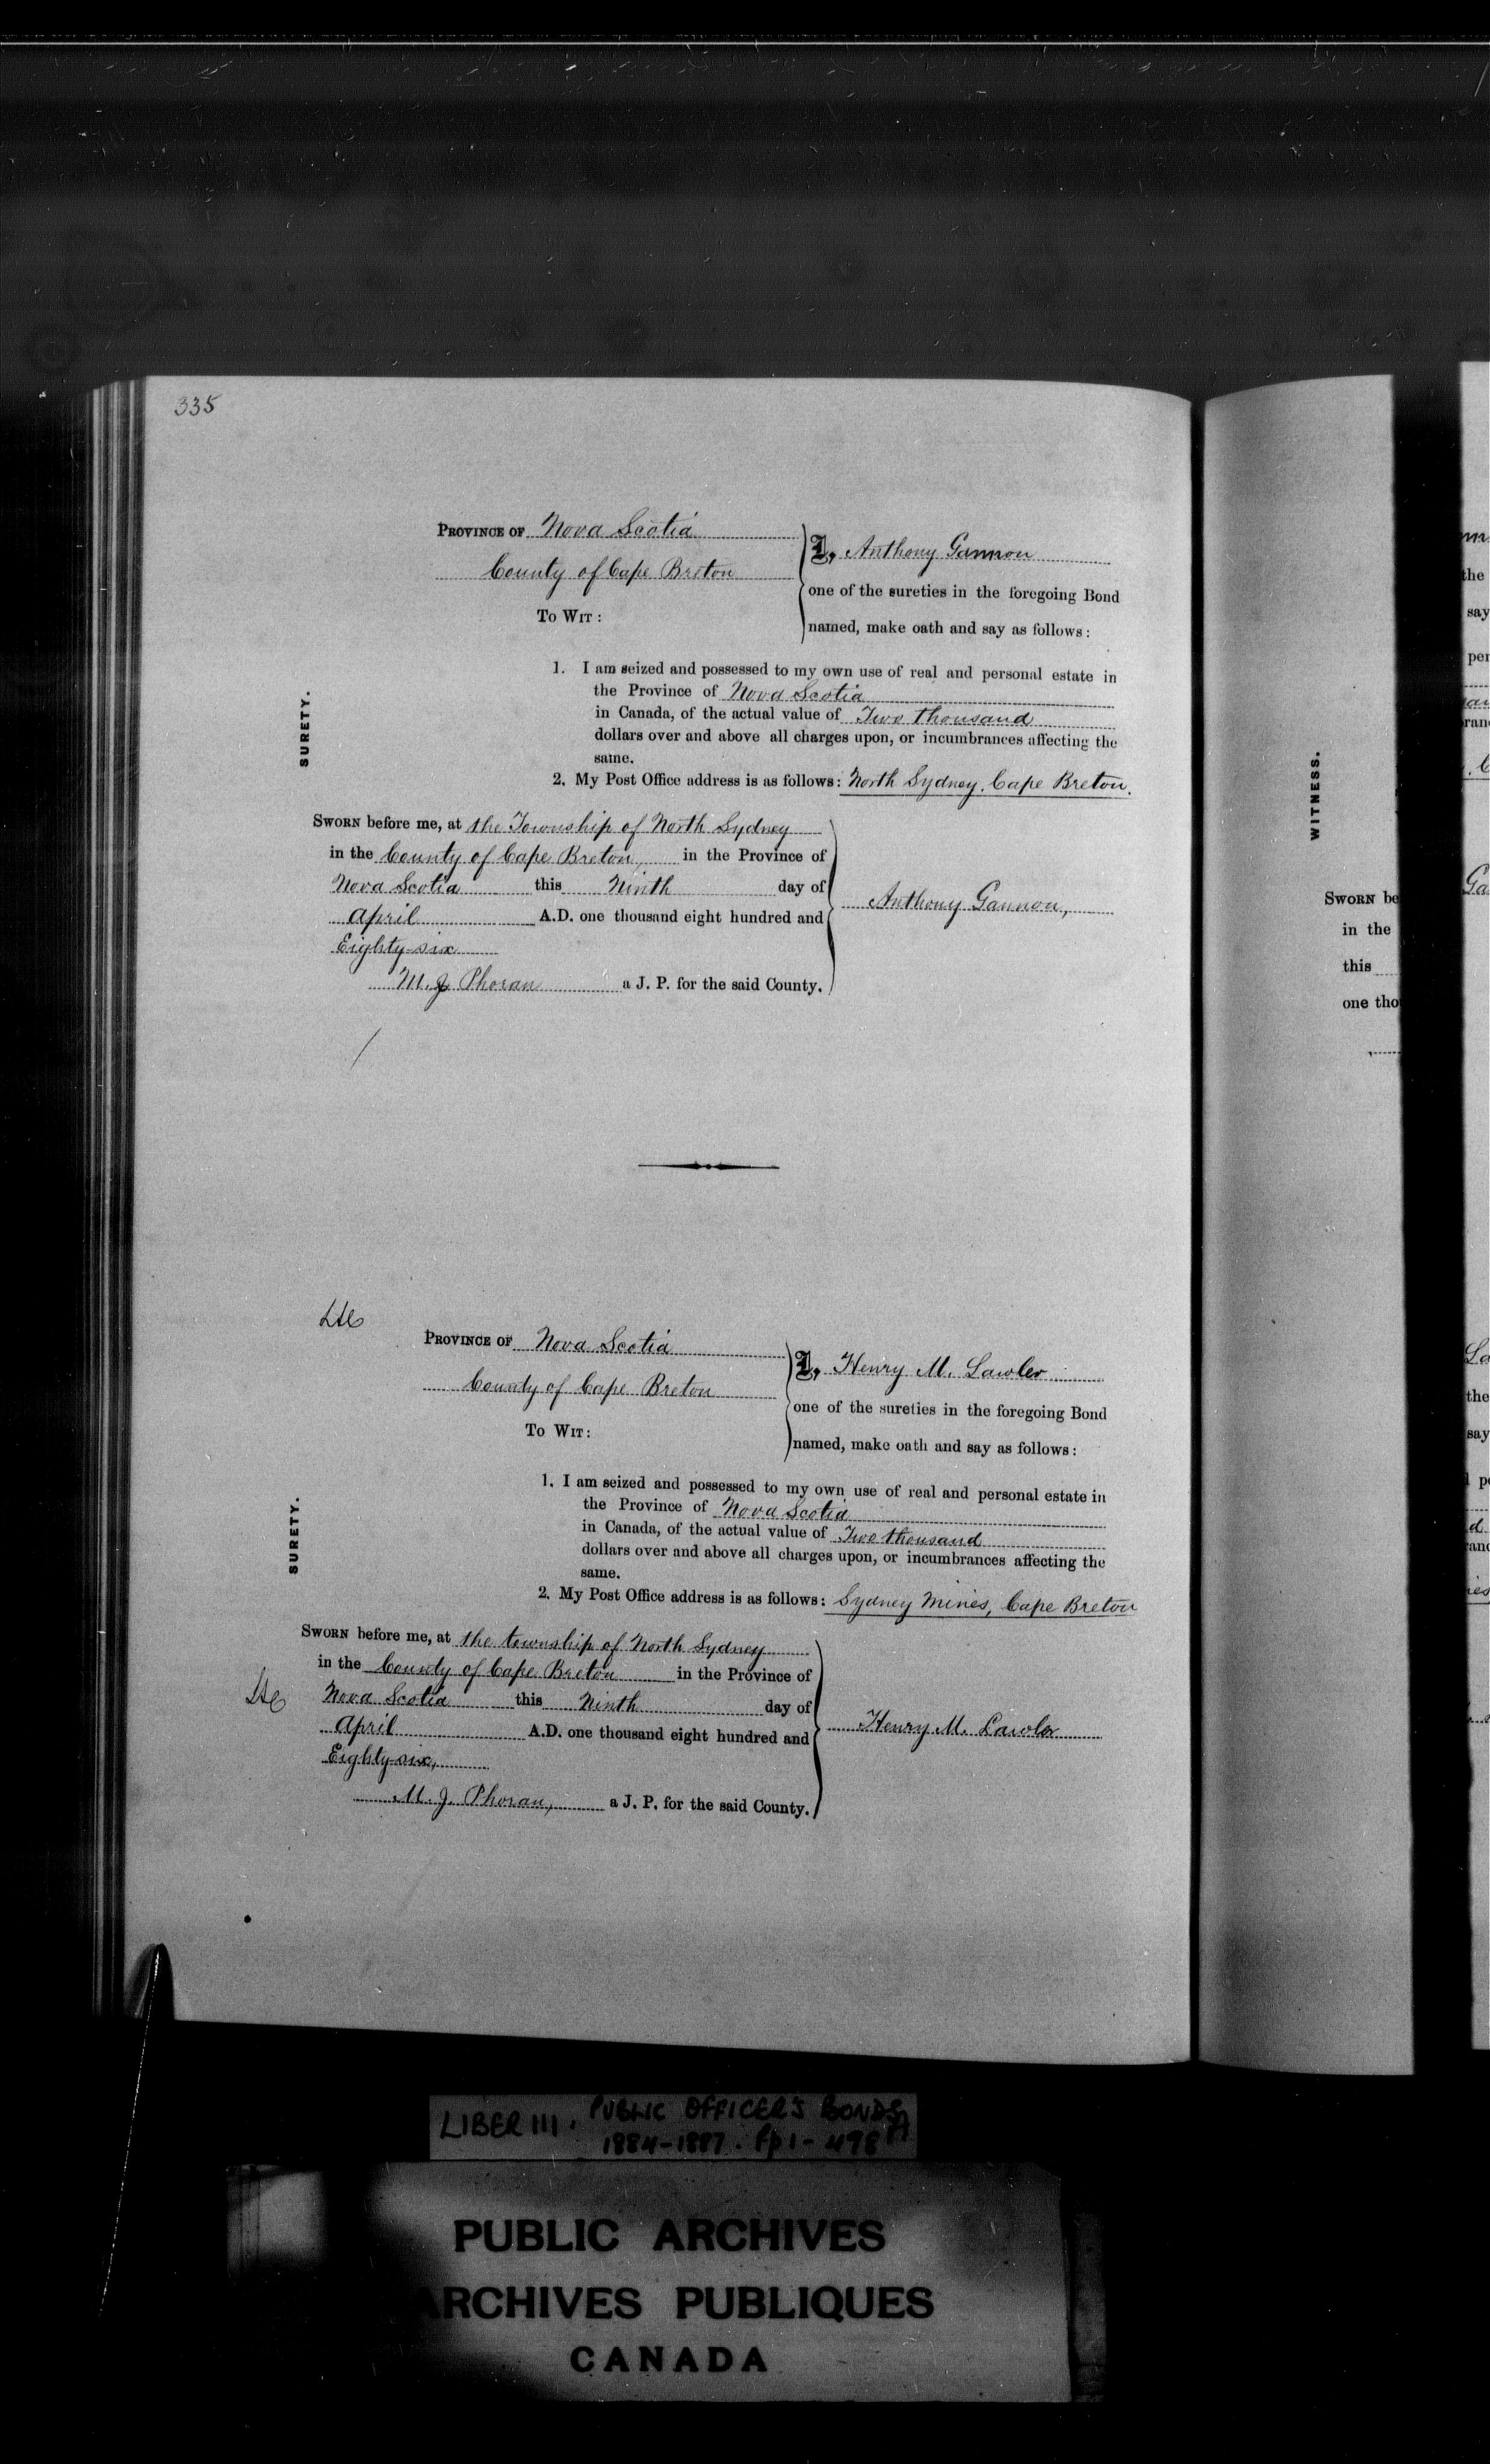 335
PROVINCE OF Nova Scotia
County of Cape Breton
TO WIT:
I, Anthony Gannon
one of the sureties in the foregoing Bond
named, make oath and say as follows:
SURETY.
1. I am seized and possessed to my own use of real and personal estate in
the Province of Nova Scotia
in Canada, of the actual value of Two thousand
dollars over and above all charges upon, or incumbrances affecting the
same.
2. My Post Office address is as follows: North Sydney, Cape Breton.
SWORN before me, at the Township of North Sydney
in the County of Cape Breton, in the Province of
Nova Scotia this Ninth day of
April A.D. one thousand eight hundred and
Eighty-six
M. J. Phoran a J. P. for the said County.
Anthony Gannon,
PROVINCE OF Nova Scotia
County of Cape Breton
TO WIT:
I, Henry M. Lawlor
one of the sureties in the foregoing Bond
named, make oath and say as follows:
SURETY.
1. I am seized and possessed to my own use of real and personal estate in
the Province of Nova Scotia
in Canada, of the actual value of Two thousand
dollars over and above all charges upon, or incumbrances affecting the
same.
2. My Post Office address is as follows: Sydney Mines, Cape Breton
SWORN before me, at the township of North Sydney
in the County of Cape Breton in the Province of
Nova Scotia this Ninth day of
April A.D. one thousand eight hundred and
Eighty-six,
M. J. Phoran, a J. P. for the said County.
Henry M. Lawlor
WITNESS.
SWORN be
in the
this
one tho
the
say
the
say
LIBER III. PUBLIC OFFICER'S BONDS
1884-1887. fp 1-498
PUBLIC ARCHIVES
ARCHIVES PUBLIQUES
CANADA